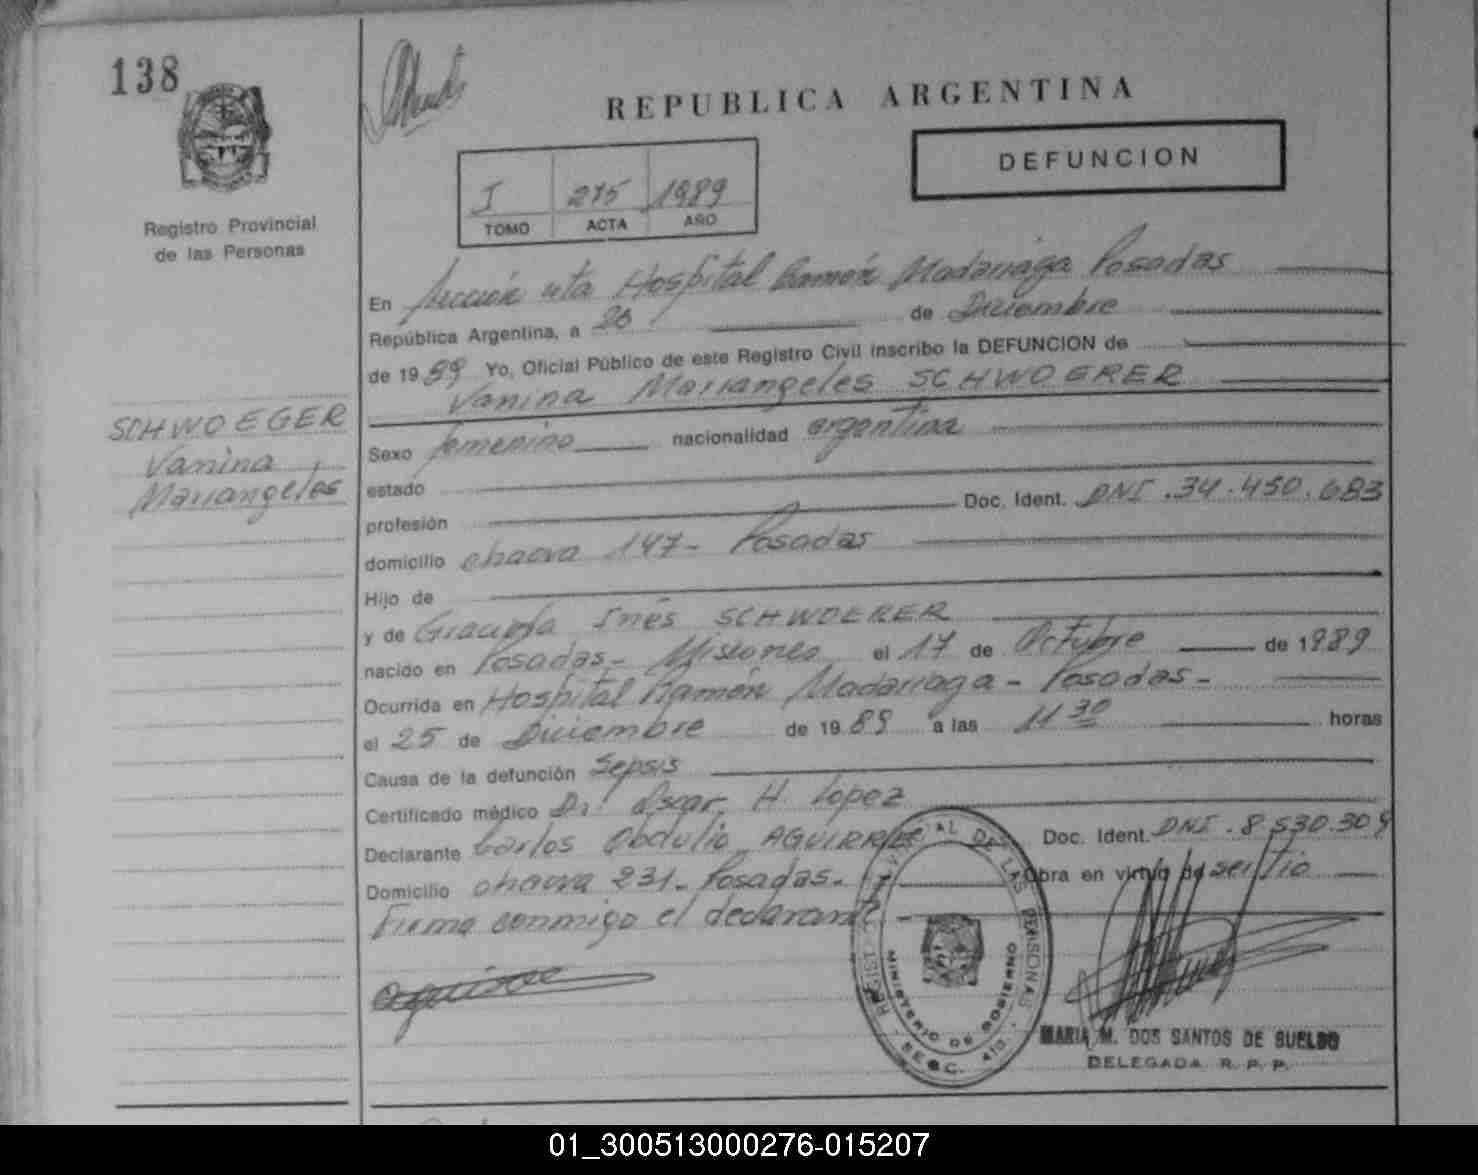 138
REPUBLICA ARGENTINA
DEFUNCION
I 275 1989
TOMO ACTA AÑO
Registro Provincial
de las Personas
SCHWOEGER
Vanina
Mariangeles
En Sección 4ta Hospital Ramón Madariaga Posadas
República Argentina, a 26 de Diciembre
de 1989 Yo, Oficial Público de este Registro Civil inscribo la DEFUNCION de
Vanina Mariangeles SCHWOERER
Sexo femenino nacionalidad argentina
estado
profesión Doc. Ident. DNI .34.450.683
domicilio chacra 147- Posadas
Hijo de
y de Graciela Inés SCHWOERER
nacido en Posadas- Misiones el 17 de Octubre de 1989
Ocurrida en Hospital Ramón Madariaga - Posadas -
el 25 de Diciembre de 1989 a las 11 30 horas
Causa de la defunción Sepsis
Certificado médico Dr. Oscar H. Lopez
Declarante Carlos Obdulio AGUIRRE Doc. Ident. DNI . 8.530.309
Domicilio chacra 231- Posadas- Obra en virtud de ser Tio
Firma conmigo el declarante
Aguirre
REGISTRO PROVINCIAL DE LAS PERSONAS
MINISTERIO DE GOBIERNO
SECC. 4TO.
MARIA M. DOS SANTOS DE SUELDO
DELEGADA R. P. P.
01_300513000276-015207